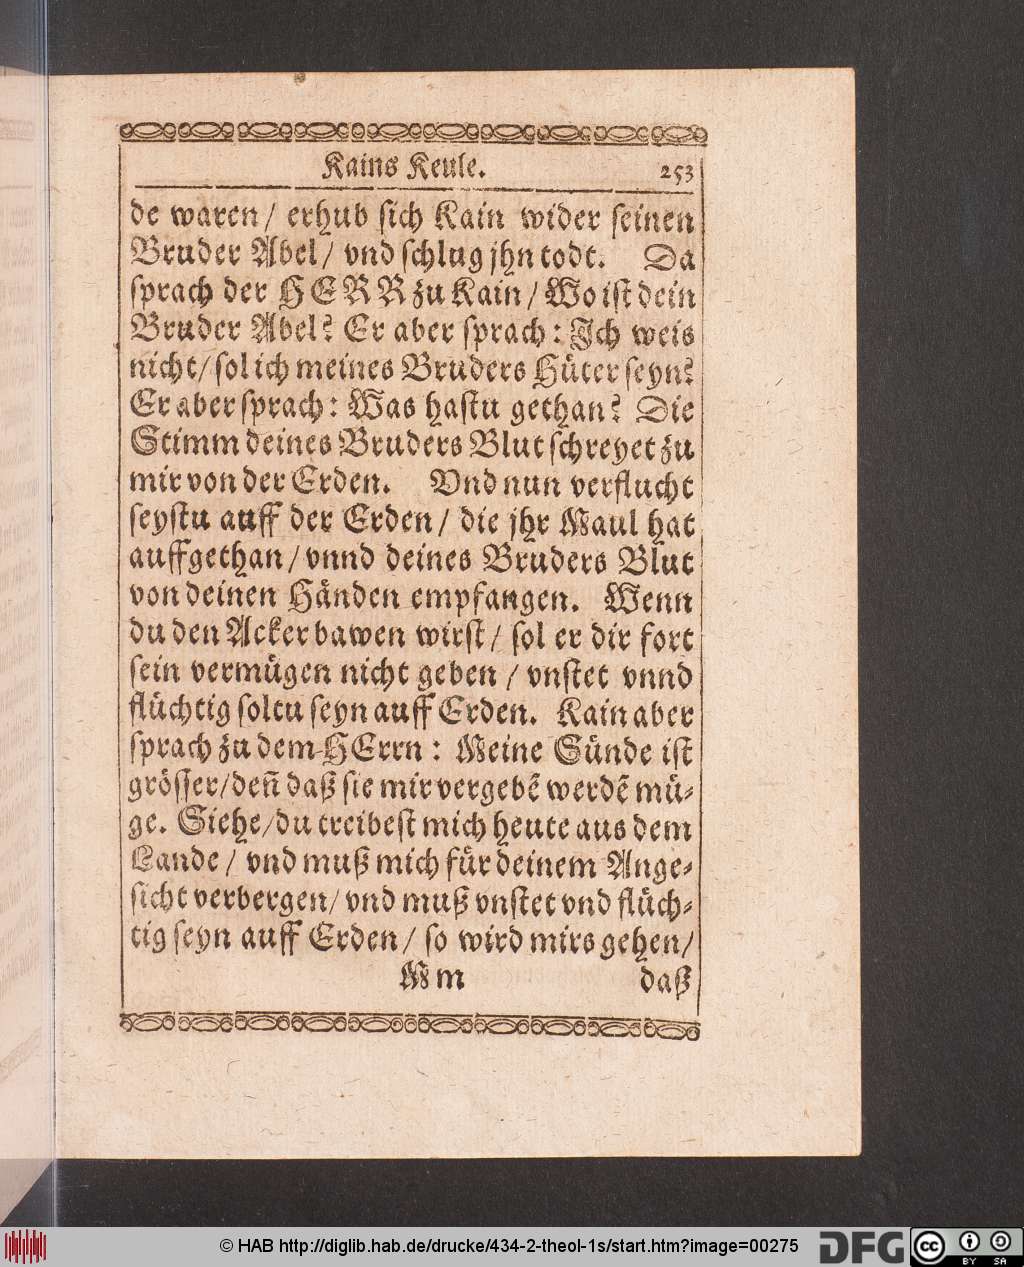 Kains Keule. 253
de waren / erhub sich Kain wider seinen
Bruder Abel / vnd schlug jhn todt. Da
sprach der HERR zu Kain / Wo ist dein
Bruder Abel? Er aber sprach: Ich weis
nicht / sol ich meines Bruders Hüter seyn?
Er aber sprach: Was hastu gethan? Die
Stimm deines Bruders Blut schreyet zu
mir von der Erden. Vnd nun verflucht
seystu auff der Erden / die jhr Maul hat
auffgethan / vnnd deines Bruders Blut
von deinen Händen empfangen. Wenn
du den Acker bawen wirst / sol er dir fort
sein vermügen nicht geben / vnstet vnnd
flüchtig soltu seyn auff Erden. Kain aber
sprach zu dem HErrn: Meine Sünde ist
grösser / deñ daß sie mir vergebẽ werdẽ mü-
ge. Siehe / du treibest mich heute aus dem
Lande / vnd muß mich für deinem Ange-
sicht verbergen / vnd muß vnstet vnd flüch-
tig seyn auff Erden / so wird mirs gehen /
M m daß
© HAB http://diglib.hab.de/drucke/434-2-theol-1s/start.htm?image=00275
DFG
cc BY SA